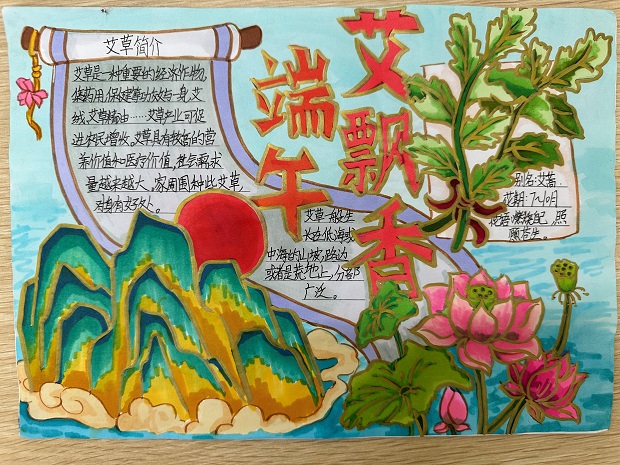 艾草简介
艾草是一种重要的经济作物,
集药用、保健等功效与一身,艾
绒、艾草精油……艾草产业可促
进农民增收,艾草具有较高的营
养价值和医疗价值,社会需求
量越来越大。家周围种此艾草,
对身有好处。
端午
艾飘香
艾草一般生
长在低海或
中海的山坡,路边
或者是荒地上,分部
广泛。
别名:艾蒿
花期:7~10月